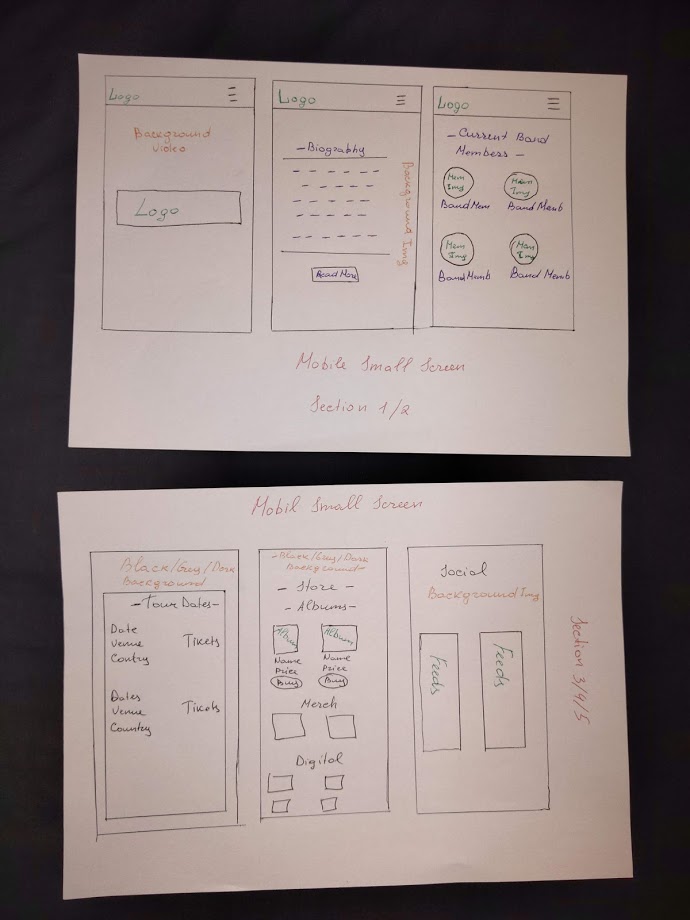 Logo
Background
Video
Logo
Logo
-Biography
Background Img
Read More
Logo
- Current Band
Members -
Mem
Img
Mem
Img
Band Mem
Band Memb
Mem
Img
Mem
Img
Band Memb
Band Memb
Mobile Small Screen
Section 1/2
Mobil Small Screen
Black/Grey/Dark
Background
-Tour Dates-
Date
Venue
Contry
Tikets
Dates
Venue
Country
Tikets
-Black/Grey/Dark
Background-
- Store -
- Albums-
Album
Album
Name
Price
Buy
Name
Price
Buy
Merch
Digital
Social
Background Img
Feeds
Feeds
Section 3/4/5